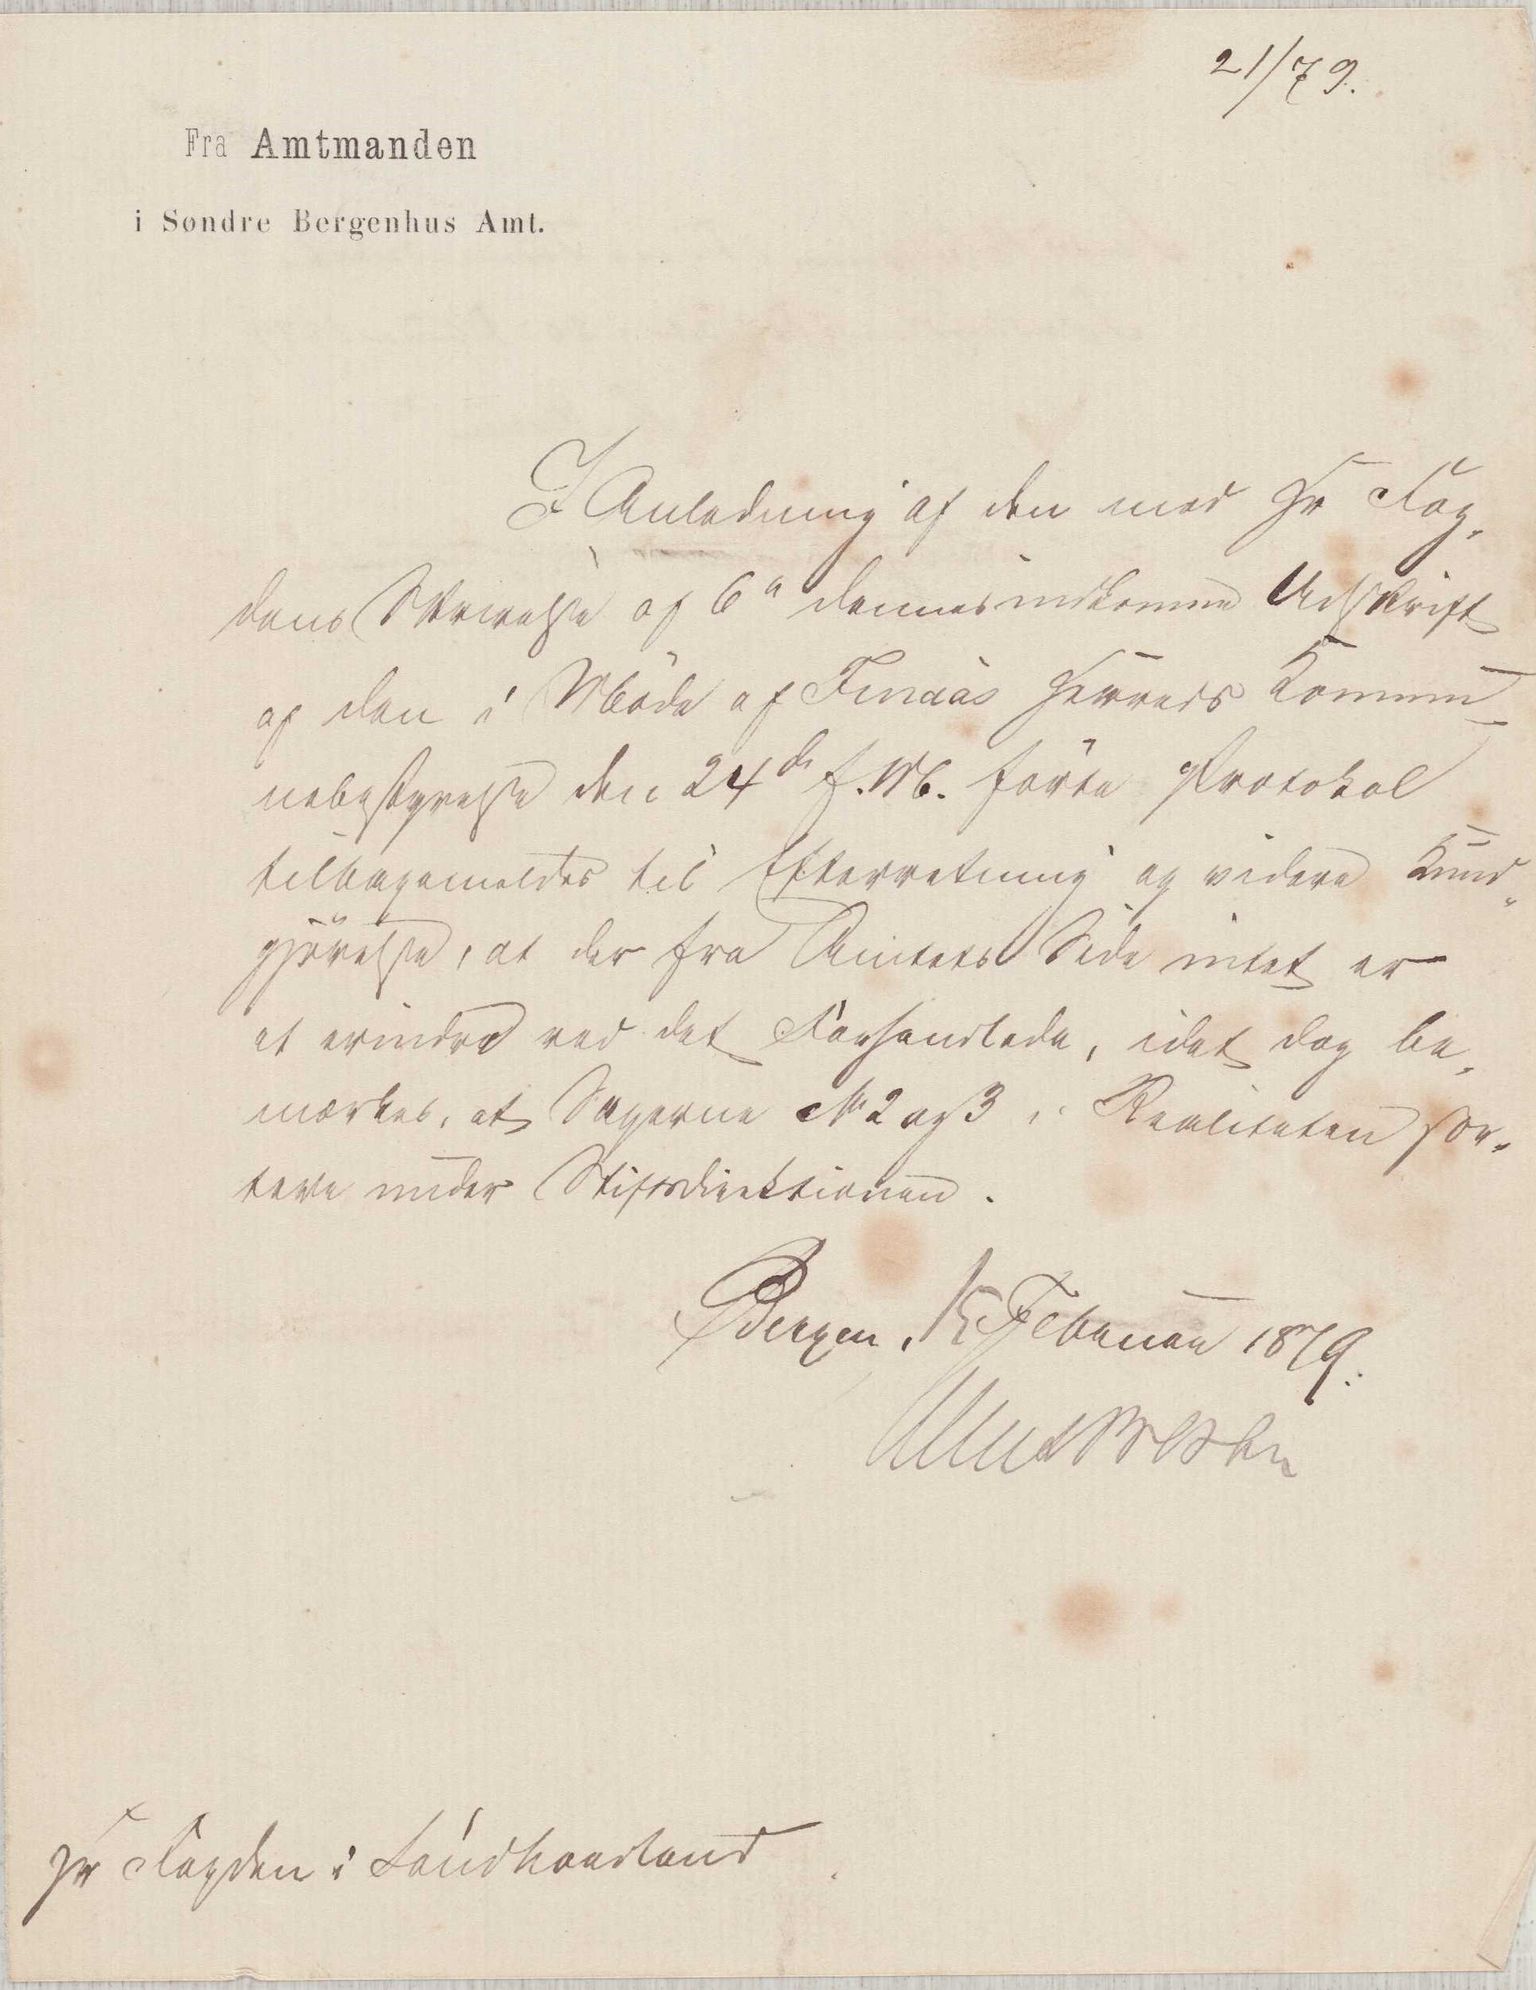 21/79.
Fra Amtmanden
i Søndre Bergenhus Amt.
I Anledning af den med Hr Fog-
dens Skrivelse af 6 dennes indkomne Udskrift
af den i Møde af Finaas Herreds Kommu-
nebestyrelse den 24de f. M. førte Protokol
tilbagemeldes til Efterretning og videre Kund-
gjørelse, at der fra Amtets Side intet er
at erindre ved det Forhandlede, idet dog be-
mærkes, at Sagerne No 2 og 3 i Realiteten sor-
tere under Stiftsdirektionen.
Bergen, 15 Februar 1879.
Hr Fogden i Søndhordland